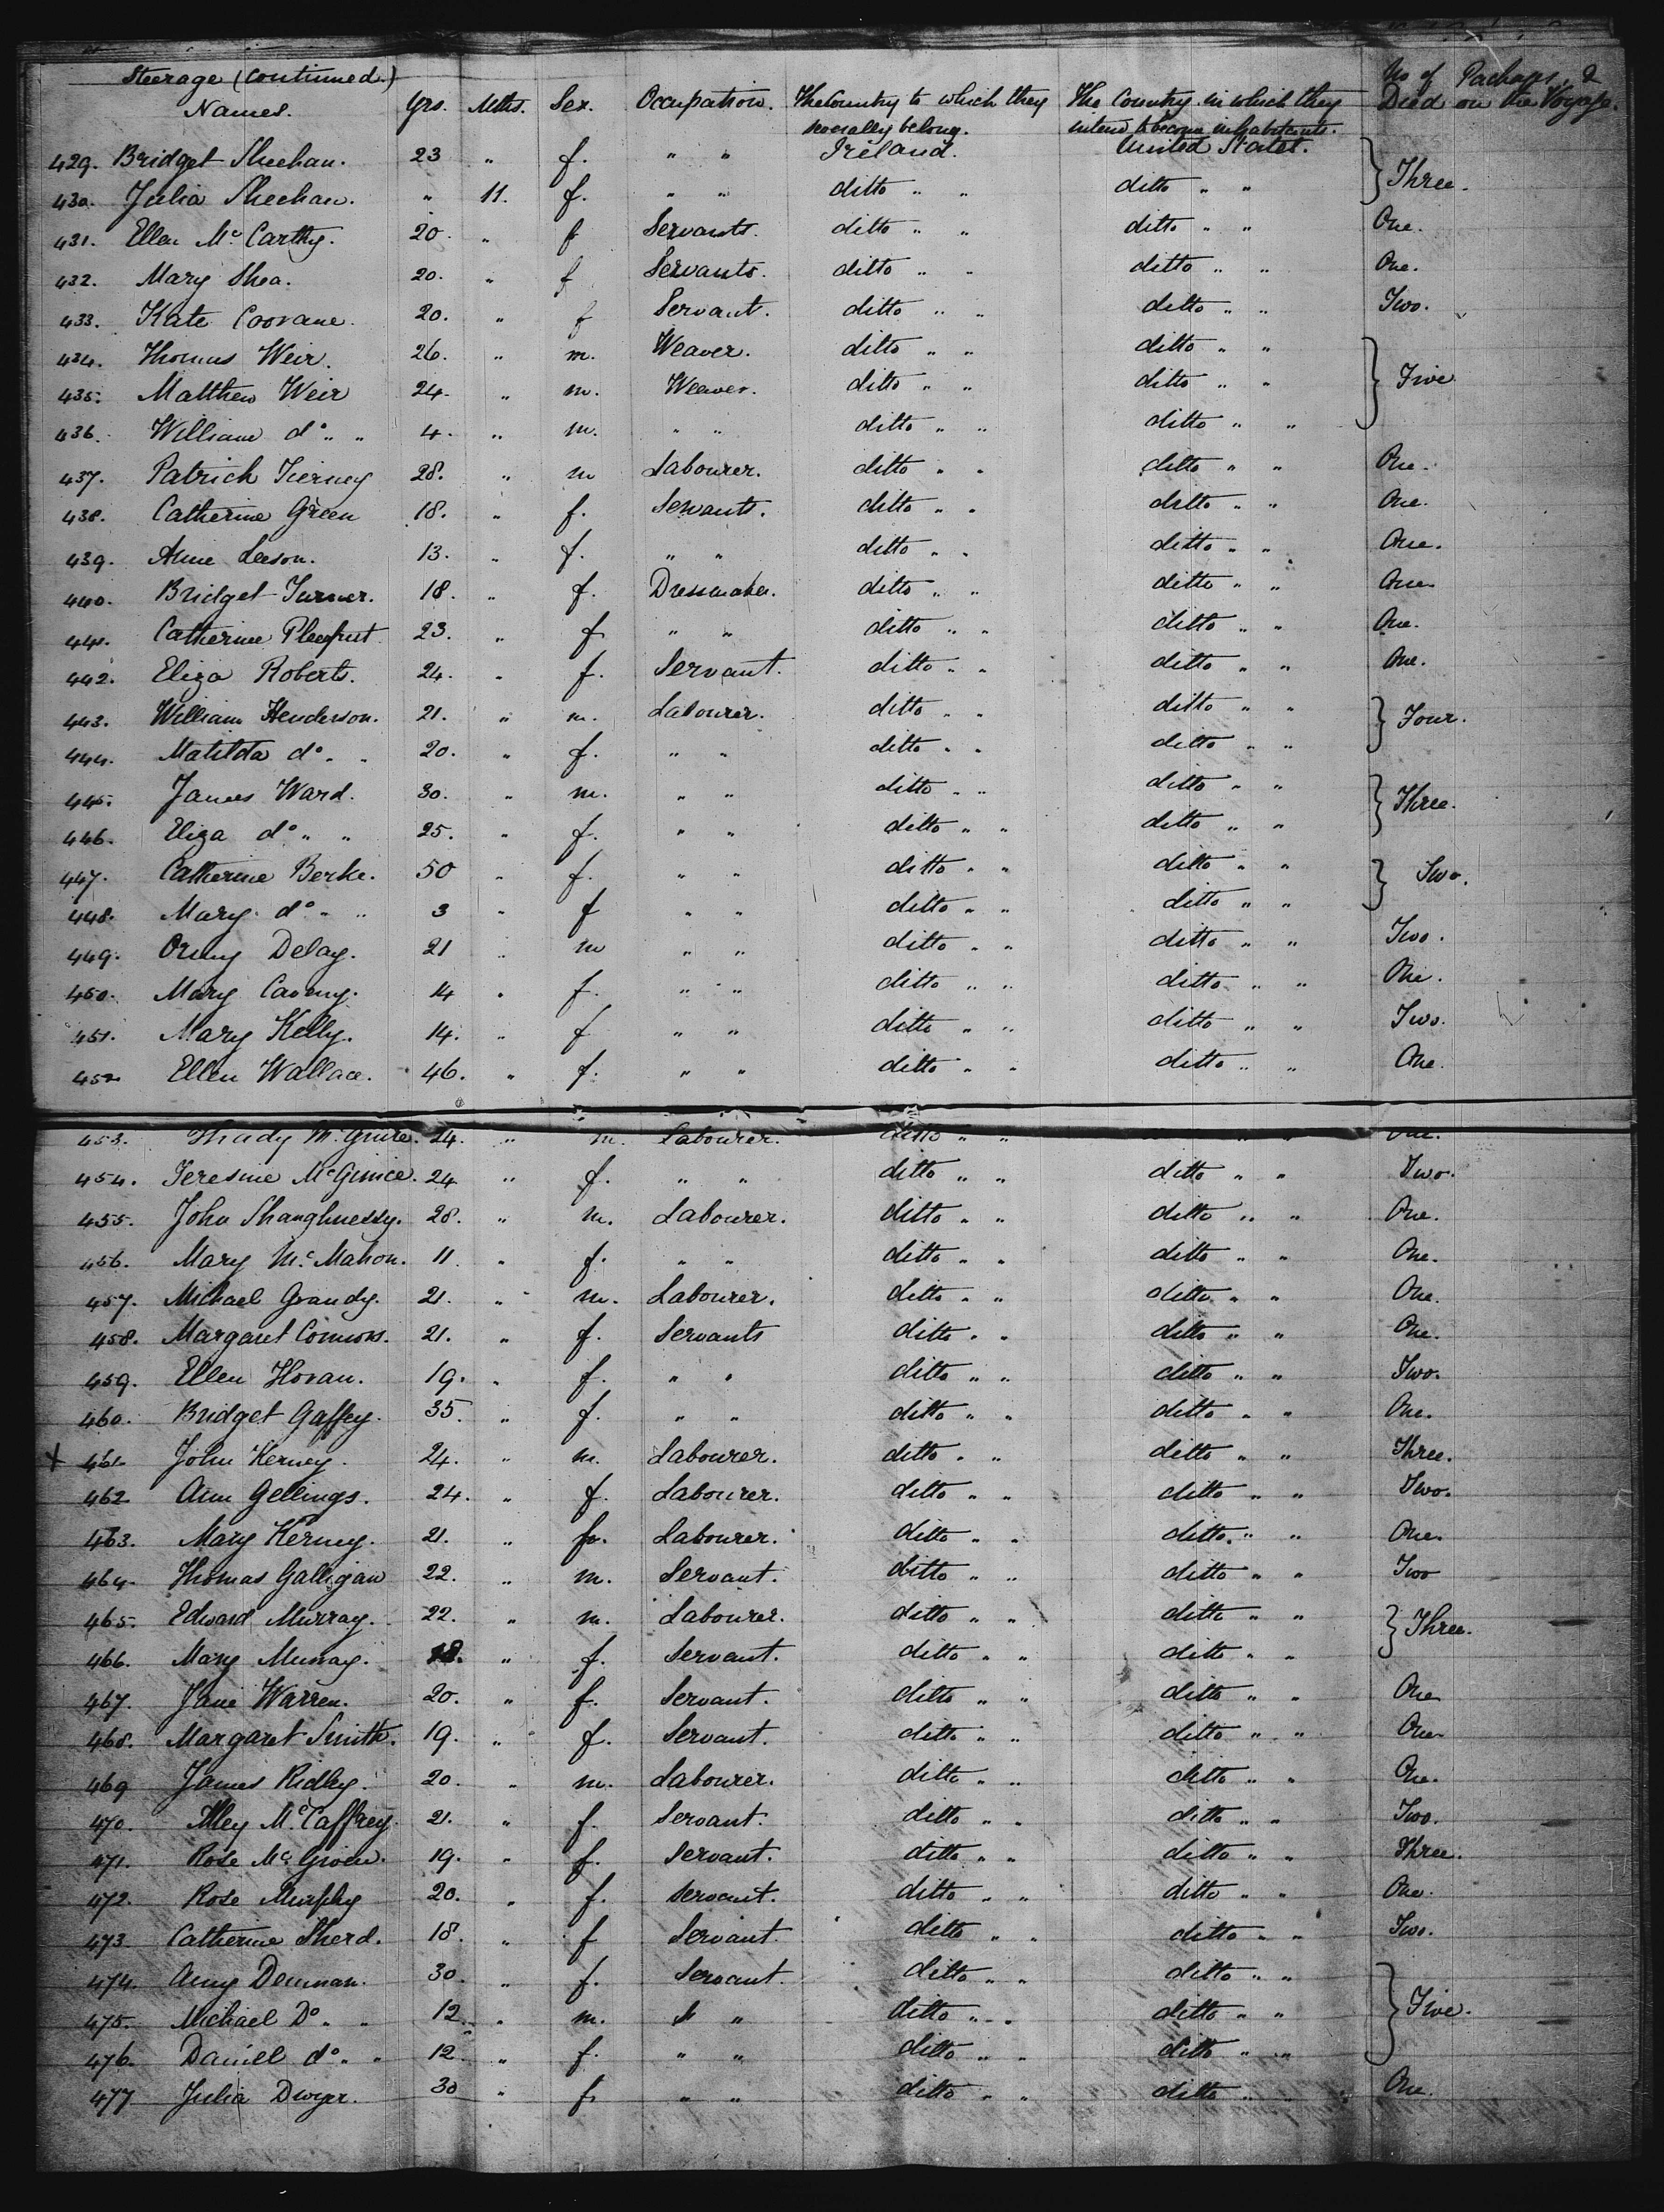 Steerage (Continued.)
Names. Yrs. Mths. Sex. Occupation. The Country to which they severally belong. The Country in which they intend to become inhabitants. No of Packages, & Died on the Voyage.
429. Bridget Sheehan. 23 " f. " " Ireland. United States. } Three.
430. Julia Sheehan. " 11. f. " " ditto " " ditto " "
431. Ellen Mc Carthy. 20. " f Servants. ditto " " ditto " " One.
432. Mary Shea. 20. " f Servants. ditto " " ditto " " One.
433. Kate Coovane. 20. " f Servant. ditto " " ditto " " Two.
434. Thomas Weir. 26. " m. Weaver. ditto " " ditto " " } Five
435. Matthew Weir 24. " m. Weaver. ditto " " ditto " "
436. William do " " 4. " m. " " ditto " " ditto " "
437. Patrick Tierney 28. " m Labourer. ditto " " ditto " " One.
438. Catherine Green 18. " f. Servants. ditto " " ditto " " One.
439. Anne Leeson. 13. " f. " " ditto " " ditto " " One.
440. Bridget Turner. 18. " f. Dressmaker. ditto " " ditto " " One.
441. Catherine 23. " f " " ditto " " ditto " " One.
442. Eliza Roberts. 24. " f. Servant. ditto " " ditto " " One.
443. William Henderson. 21. " m. Labourer. ditto " " ditto " " } Four.
444. Matilda do " " 20. " f. " " ditto " " ditto " "
445. James Ward. 30. " m. " " ditto " " ditto " " } Three.
446. Eliza do " " 25. " f. " " ditto " " ditto " "
447. Catherine Berke. 50 " f. " " ditto " " ditto " " } Two.
448. Mary do " " 3 " f " " ditto " " ditto " "
449. Delay. 21 " m " " ditto " " ditto " " Two.
450. Mary 14 " f. " " ditto " " ditto " " One.
451. Mary Kelly. 14. " f " " ditto " " ditto " " Two.
452 Ellen Wallace. 46. " f. " " ditto " " ditto " " One.
453. Thady McGuire. 24. " m. Labourer. ditto " " " " One.
454. McGinice. 24 " f. " " ditto " " ditto " " Two.
455. John Shaughnessy. 28. " m. Labourer. ditto " " ditto " " One.
456. Mary Mc Mahon. 11 " f. " " ditto " " ditto " " One.
457. Michael Grandy. 21. " m. Labourer. ditto " " ditto " " One.
458. Margaret Connors. 21. " f. Servants ditto " " ditto " " One.
459. Ellen Horan. 19. " f. " " ditto " " ditto " " Two.
460. Bridget Gaffey. 35. " f. " " ditto " " ditto " " One.
X 461. John Kerney. 24. " m. Labourer. ditto " " ditto " " Three.
462. Ann Gellings. 24. " f. Labourer. ditto " " ditto " " Two.
463. Mary Kerney. 21. " f. Labourer. ditto " " ditto " " One.
464. Thomas Galligan 22. " m. Servant. ditto " " ditto " " Two
465. Edward Murray. 22. " m. Labourer. ditto " " ditto " " } Three.
466. Mary Murray. 18. " f. Servant. ditto " " ditto " "
467. Jane Warren. 20. " f. Servant. ditto " " ditto " " One
468. Margaret Smith. 19. " f. Servant. ditto " " ditto " " One
469 James Ridley. 20. " m. Labourer. ditto " " ditto " " One.
470. Alley McCaffrey. 21. " f. Servant. ditto " " ditto " " Two.
471. Rose Mc 19. " f. Servant. ditto " " ditto " " Three.
472. Rose Murphy 20. " f. Servant. ditto " " ditto " " One.
473 Catherine Sherd. 18. " f Servant. ditto " " ditto " " Two.
474. Amy Dennan. 30. " f. Servant. ditto " " ditto " " } Five.
475. Michael Do " " 12. " m. " " ditto " " ditto " "
476. Daniel do " " 12. " f. " " ditto " " ditto " "
477 Julia Dwyer. 30 " f. " " ditto " " ditto " One.